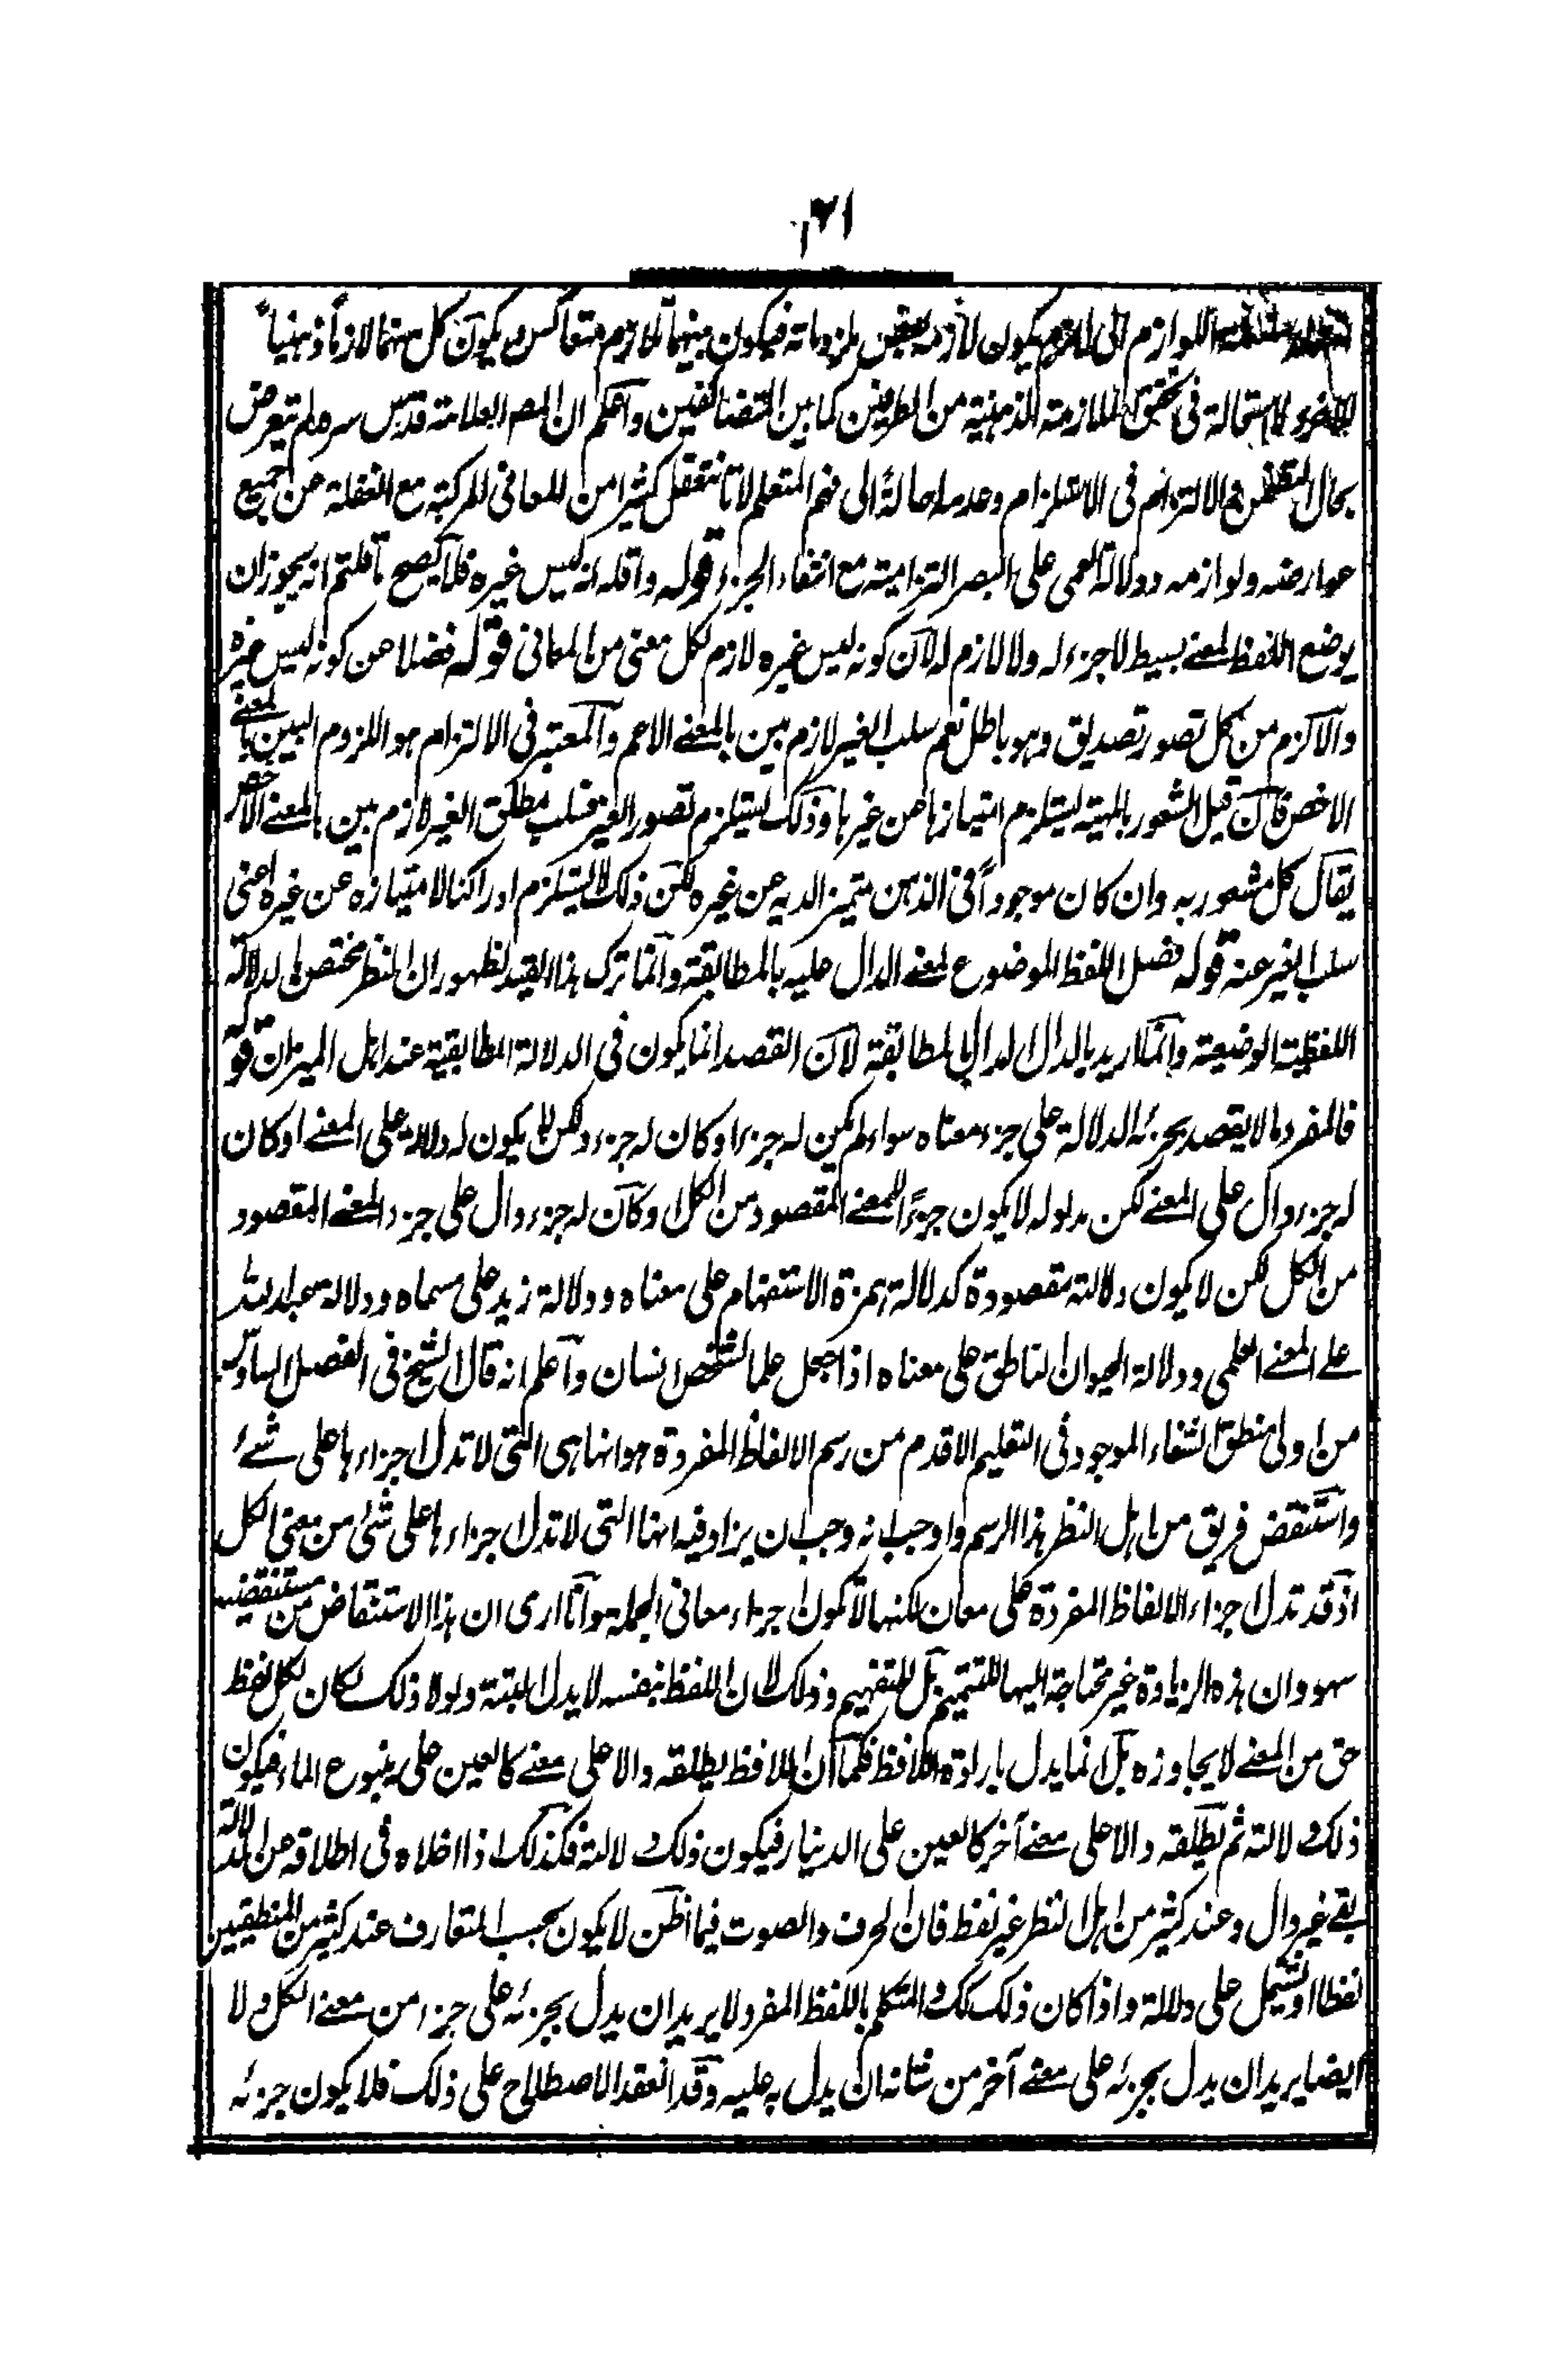 ١٢١
اللوازم الى يكون لازمه بعض ملزوماته فيكون بينهما تلازم متعاكس ويكون كل منهما لازما ذهنيا
للآخر ولا استحالة فى تحقق الملازمة الذهنية من الطرفين كما بين المتضائفين واعلم ان المصر العلامة قدس سره لم يتعرض
بحال التضمن والالتزام فى الاستلزام وعدمه احالة الى فهم المتعلم لانا نتعقل كثيرا من المعانى المركبة مع الغفلة عن جميع
عوارضه ولوازمه ودلالة العمى على البصر التزامية مع انتفاء الجزء قوله واقله انه ليس غيره فلا يصح ما قلتم انه يجوز ان
يوضع اللفظ لمعنے بسيط لا جزء له ولا لازم له لان كونه ليس غيره لازم لكل معنى من المعانى قوله فضلا عن كونه ليس غيره
والا لزم من كل تصور تصديق وهو باطل نعم سلب الغير لازم بين بالمعنے الاعم والمعتبر فى الالتزام هو اللزوم البين بالمعنے
الاخص فان قيل الشعور بالمهية يستلزم امتيازها عن غيرها وذلك يستلزم تصور الغير فسلب مطلق الغير لازم بين بالمعنے الاخص
يقال كل مشعور به وان كان موجودا فى الذهن متميزا لديه عن غيره لكن ذلك لا يستلزم ادراكنا لامتيازه عن غيره اعنى
سلب الغير عنه قوله فصل اللفظ الموضوع لمعنے الدال عليه بالمطابقة وانما ترك هذا القيد لظهور ان النظر مختص بالدلالة
اللفظية الوضعية وانما اريد بالدال الدال بالمطابقة لان القصد انما يكون فى الدلالة المطابقية عند اهل الميزان قوله
فالمفرد ما لا يقصد بجزئه الدلالة على جزء معناه سواء لم يكن له جزء او كان له جزء ولكن لا يكون له دلالة على المعنے او كان
له جزء دال على المعنے لكن مدلوله لا يكون جزءا للمعنے المقصود من الكل او كان له جزء دال على جزء المعنے المقصود
من الكل لكن لا يكون دلالته مقصودة كدلالة همزة الاستفهام على معناه ودلالة زيد على مسماه ودلالة عبد الله
على المعنے العلمى ودلالة الحيوان الناطق على معناه اذا جعل علما لشخص انسان واعلم انه قال الشيخ فى الفصل السادس
من اولى منطق الشفاء الموجود فى التعليم الاقدم من رسم الالفاظ المفردة هو انها هى التى لا تدل اجزاءها على شئ
واستنقض فريق من اهل النظر هذا الرسم واوجب انه وجب ان يزاد فيه انها التى لا تدل اجزاءها على شئ من معنى الكل
اذ قد تدل اجزاء الالفاظ المفردة على معان لكنها لا تكون اجزاء معانى الجملة وانا ارى ان هذا الاستنقاض من مستنقضيه
سهو وان هذه الزيادة غير محتاجة اليها للتتميم بل للتفهيم وذلك لان اللفظ بنفسه لا يدل البتة ولولا ذلك لكان لكل لفظ
حق من المعنے لا يجاوزه بل انما يدل بارادة اللافظ فكما ان اللافظ يطلقه دالا على معنے كالعين على ينبوع الماء فيكون
ذلك دلالته ثم يطلقه دالا على معنے آخر كالعين على الدينار فيكون ذلك دلالته فكذلك اذا اخلاه فى اطلاقه عن الدلالة
بقے غير دال وعند كثير من اهل النظر غير لفظ فان الحرف والصوت فيما اظن لا يكون بحسب المتعارف عند كثير من المنطقيين
لفظا او يشتمل على دلالة واذا كان ذلك كك المتكلم باللفظ المفرد لا يريد ان يدل بجزئه على جزء من معنے الكل ولا
ايضا يريد ان يدل بجزئه على معنے آخر من شانه ان يدل به عليه وقد انعقد الاصطلاح على ذلك فلا يكون جزئه